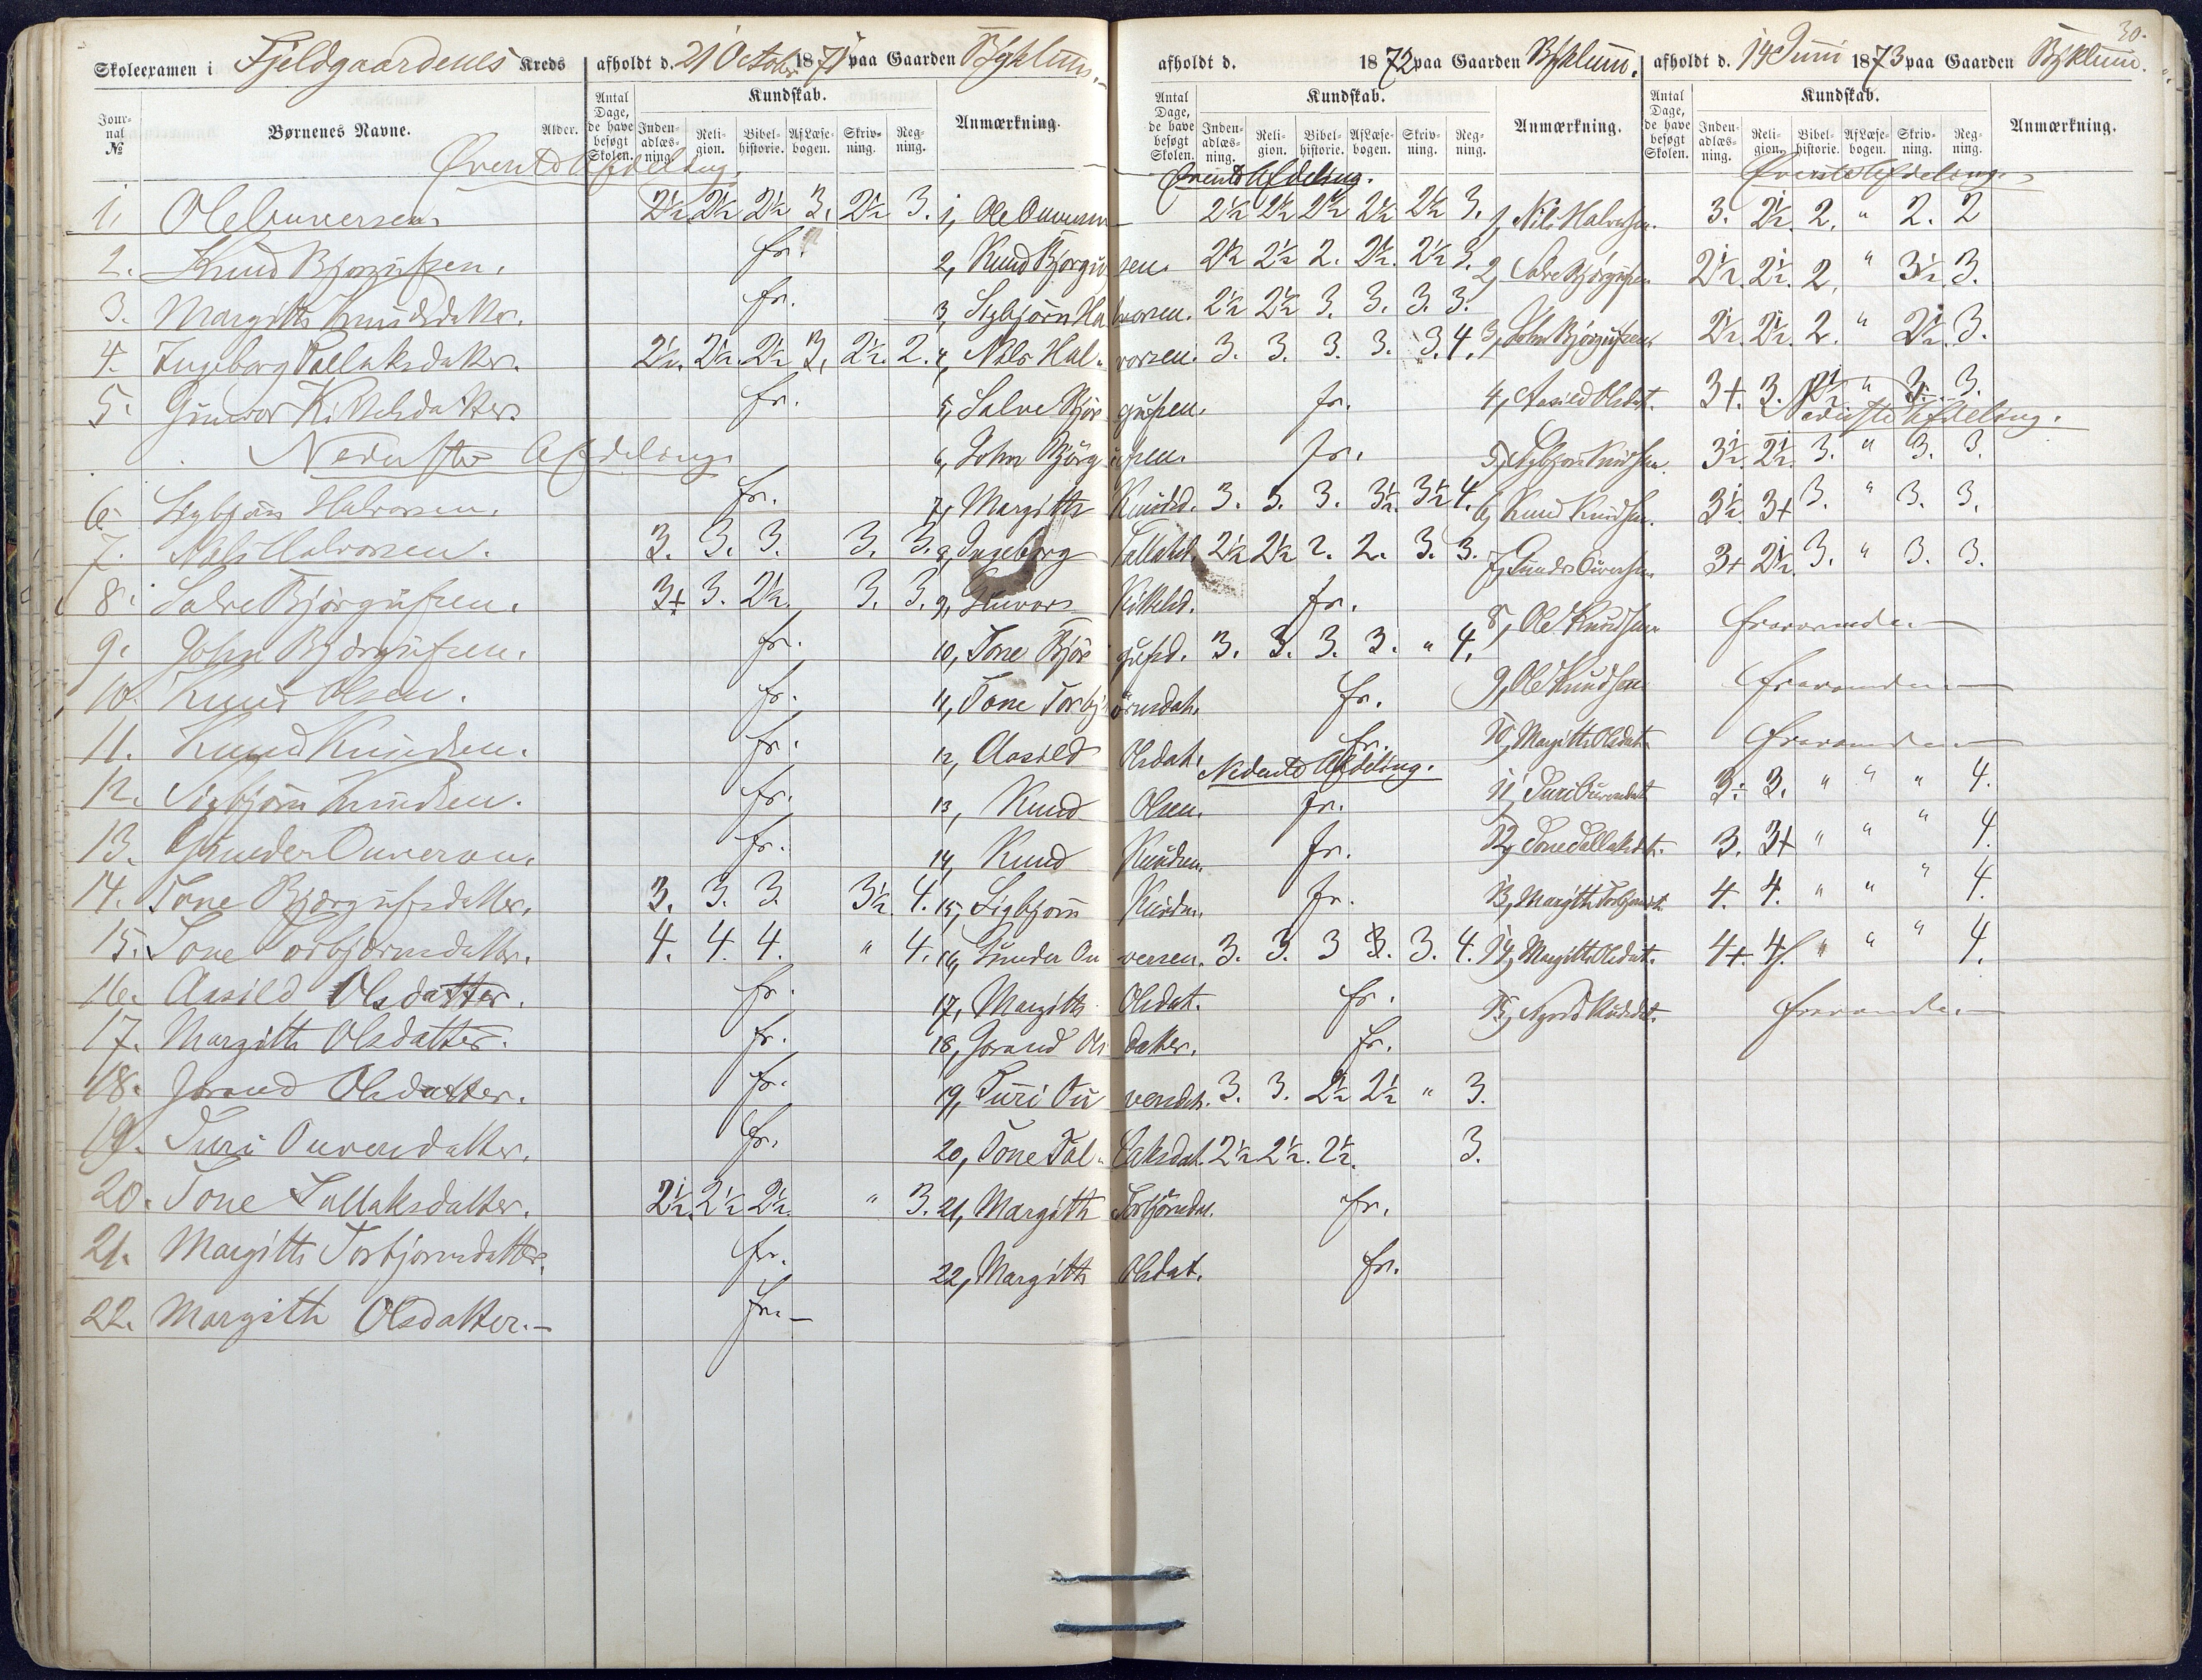 30.
Skoleexamen i Fjeldgaardenes Kreds afholdt d. 21 October 1871 paa Gaarden Bykleum. afholdt d. 1872 paa Gaarden Bykleum. afholdt d. 14 Juni 1873 paa Gaarden Bykleum.
Journal № Børnenes Navne. Alder. Antal Dage, de have besøgt Skolen. Kundskab. Indenadlæsning. Religion. Bibelhistorie. Af Læsebogen. Skrivning. Regning. Anmærkning.
Antal Dage, de have besøgt Skolen. Kundskab. Indenadlæsning. Religion. Bibelhistorie. Af Læsebogen. Skrivning. Regning. Anmærkning.
Antal Dage, de have besøgt Skolen. Kundskab. Indenadlæsning. Religion. Bibelhistorie. Af Læsebogen. Skrivning. Regning. Anmærkning.
Øverste Afdeling.
1. Ole Ouversen 2½ 2½ 2½ 3. 2½ 3.
2. Knud Bjørgufsen. fr.
3. Margith Knudsdatter. fr.
4. Ingeborg Tallaksdatter. 2½. 2½. 2½ 3. 2½. 2.
5. Gunvor Kittelsdatter. fr.
Nederste Afdeling
6. Sigbjørn Halvorsen. fr.
7. Nils Halvorsen. 3. 3. 3. 3. 3.
8. Salve Bjørgufsen. 3+ 3. 2½. 3. 3.
9. John Bjørgufsen. fr.
10. Knud Olsen. fr.
11. Knud Knudsen. fr.
12. Sigbjørn Knudsen. fr.
13. Gunder Ouverson. fr.
14. Tone Bjørgufsdatter. 3. 3. 3. 3½. 4.
15. Tone Torbjørnsdatter. 4. 4. 4. " 4.
16. Aasild Olsdatter. fr.
17. Margith Olsdatter. fr.
18. Jorand Olsdatter. fr.
19. Turi Ouversdatter. fr.
20. Tone Tallaksdatter. 2½. 2½ 2½. " 3.
21. Margith Torbjørnsdatter. fr.
22. Margith Olsdatter. fr.
Øverste Afdeling.
1, Ole Ouversen 2½ 2½ 2½ 2½ 2½ 3.
2, Knud Bjørgufsen. 2½ 2½ 2. 2½. 2½ 3.
3, Sigbjørn Halvorsen. 2½ 2½ 3. 3. 3. 3.
4, Nils Halvorsen. 3. 3. 3. 3. 3. 4.
5, Salve Bjørgufsen. fr.
6, John Bjørgufsen. fr.
7, Margith Knudsd. 3. 3. 3. 3½. 3½ 4.
8, Ingeborg Tallaksd. 2½ 2½ 2. 2. 3. 3.
9, Gunvor Kittelsd. fr.
10, Tone Bjørgufsd. 3. 3. 3. 3. " 4.
11, Tone Torbjørnsdat. fr.
12, Aasild Olsdat. fr.
Nederste Afdeling.
13, Knud Olsen. fr.
14, Knud Knudsen. fr.
15, Sigbjørn Knudsen. fr.
16, Gunder Ouversen. 3. 3. 3 3. 3. 4.
17, Margith Olsdat. fr.
18, Jorand Olsdatter. fr.
19, Turi Ouversdat. 3. 3. 2½ 2½ " 3.
20, Tone Tallaksdat. 2½ 2½. 2½. 3.
21, Margith Torbjørnsdat. fr.
22, Margith Olsdat. fr.
Øverste Afdeling.
1, Nils Halvorsen. 3. 2½. 2. " 2. 2
2, Salve Bjørgufsen 2½. 2½. 2. " 3½. 3.
3, John Bjørgufsen. 2½. 2½. 2. " 2½. 3.
4, Aasild Olsdat. 3+. 3. 2½ " 3. 3.
Nederste Afdeling.
5, Sigbjørn Knudsen. 3½. 2½. 3. " 3. 3.
6, Knud Knudsen. 3½. 3+ 3. " 3. 3.
7, Gunder Ouversen 3+ 2½. 3. " 3. 3.
8, Ole Knudsen fraværende
9, Ole Knudsen fraværende
10, Margith Olsdat. fraværende
11, Turi Ouversdat. 3. 3. " " " 4.
12, Tone Tallaksdat. 3. 3+ " " " 4.
13, Margith Torbjørnsdt. 4. 4. " " " 4.
14, Margith Olsdat. 4+. 4. " " " 4.
15, Knudsdat. fraværende